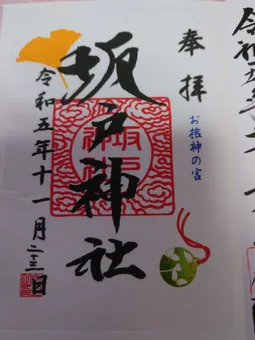 奉拝
お捨神の宮
坂戸神社
令和五年十一月二十三日